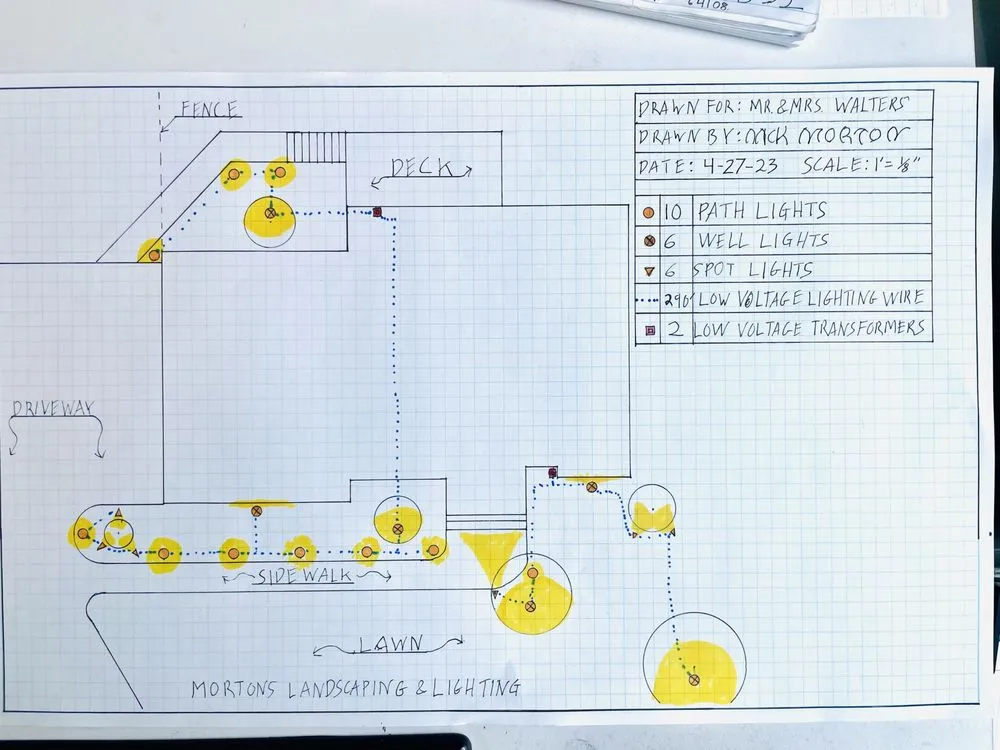 64108
FENCE
DRAWN FOR: MR. & MRS. WALTERS
DRAWN BY: NICK MORTON
DATE: 4-27-23 SCALE: 1'= 1/8"
DECK
10 PATH LIGHTS
6 WELL LIGHTS
6 SPOT LIGHTS
290' LOW VOLTAGE LIGHTING WIRE
2 LOW VOLTAGE TRANSFORMERS
DRIVEWAY
SIDEWALK
LAWN
MORTONS LANDSCAPING & LIGHTING